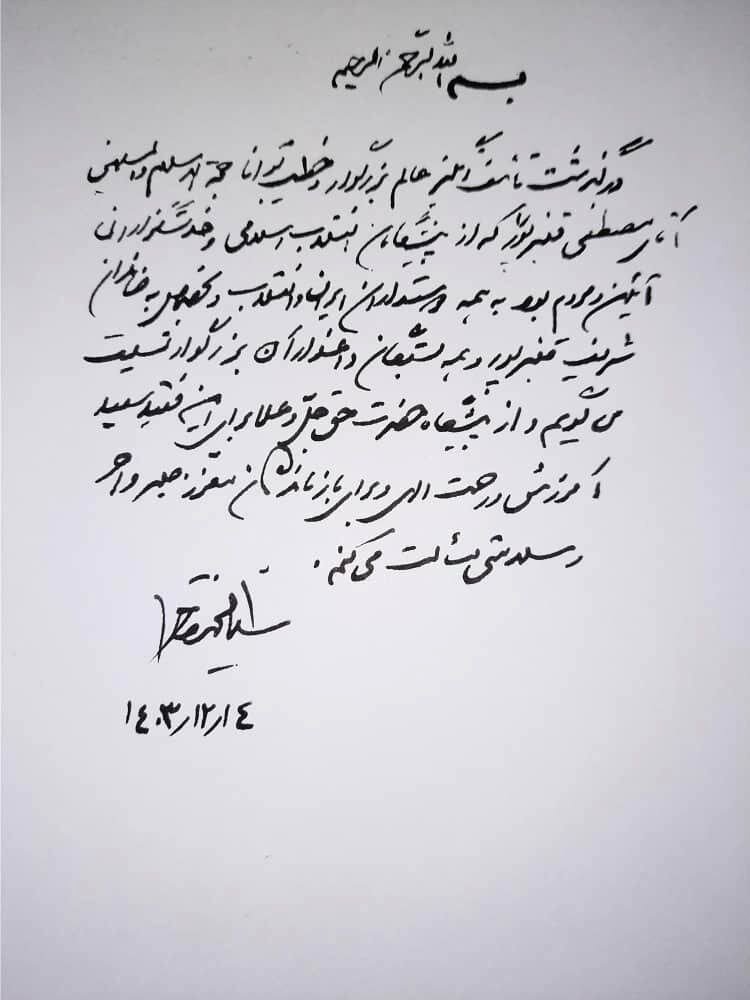 بسم الله الرحمن الرحیم
درگذشت تأسف انگیز عالم بزرگوار و خطیب توانا حجة الاسلام والمسلمین
آقای مصطفی قنبرپور که از پیشگامان انقلاب اسلامی و خدمتگزاران
آئین و مردم بود به همه دوستداران ایران و انقلاب و بخصوص به خاندان
شریف قنبرپور و همه بستگان و اعزه آن بزرگوار تسلیت
می گویم و از پیشگاه حضرت حق جلّ و علا برای این فقید سعید
آمرزش و رحمت الهی و برای بازماندگان معزز صبر و اجر
و سلامتی مسألت می کنم.
سید محمد خاتمی
۱۴۰۳ر۱۲ر۱۴